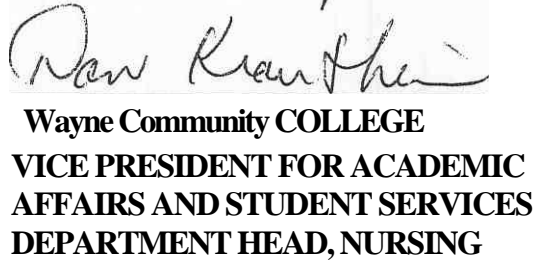 Wayne Community COLLEGE
VICE PRESIDENT FOR ACADEMIC
AFFAIRS AND STUDENT SERVICES
DEPARTMENT HEAD, NURSING